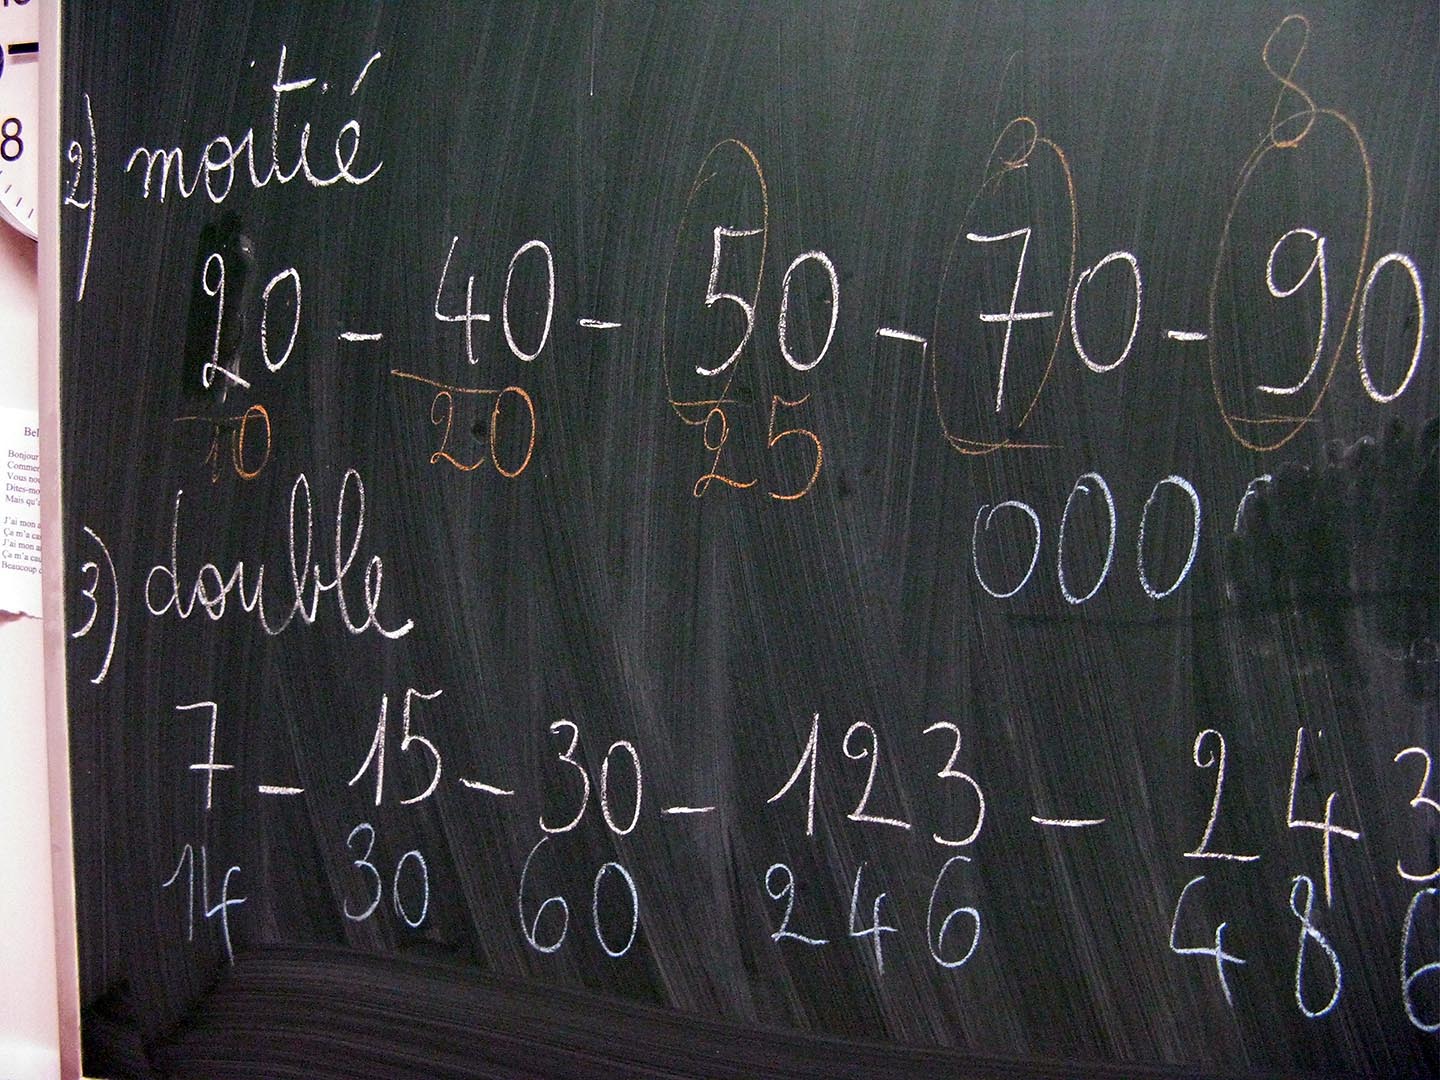 8
2) moitié
20 - 40 - 50 - 70 - 90
10 20 25
000
3) double
7 - 15 - 30 - 123 - 243
14 30 60 246 486
Bel
Bonjour
Comme
Vous no
Dites-mo
Mais qu'
J'ai mon a
Ça m'a ca
J'ai mon a
Ça m'a ca
Beaucoup